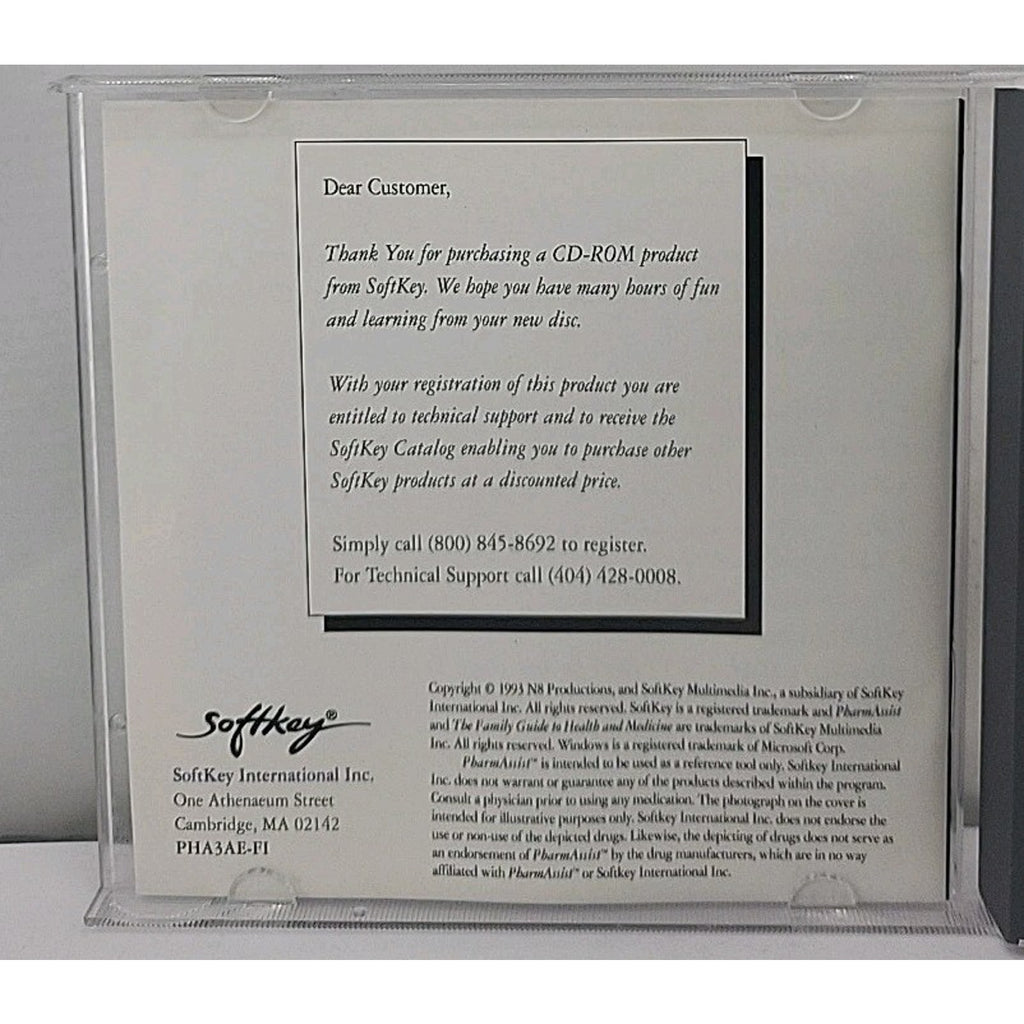 Dear Customer,
Thank You for purchasing a CD-ROM product
from SoftKey. We hope you have many hours of fun
and learning from your new disc.
With your registration of this product you are
entitled to technical support and to receive the
SoftKey Catalog enabling you to purchase other
SoftKey products at a discounted price.
Simply call (800) 845-8692 to register.
For Technical Support call (404) 428-0008.
softkey®
SoftKey International Inc.
One Athenaeum Street
Cambridge, MA 02142
PHA3AE-FI
Copyright © 1993 N8 Productions, and SoftKey Multimedia Inc., a subsidiary of SoftKey
International Inc. All rights reserved. SoftKey is a registered trademark and PharmAssist
and The Family Guide to Health and Medicine are trademarks of SoftKey Multimedia
Inc. All rights reserved. Windows is a registered trademark of Microsoft Corp.
PharmAssist™ is intended to be used as a reference tool only. Softkey International
Inc. does not warrant or guarantee any of the products described within the program.
Consult a physician prior to using any medication. The photograph on the cover is
intended for illustrative purposes only. Softkey International Inc. does not endorse the
use or non-use of the depicted drugs. Likewise, the depicting of drugs does not serve as
an endorsement of PharmAssist™ by the drug manufacturers, which are in no way
affiliated with PharmAssist™ or Softkey International Inc.